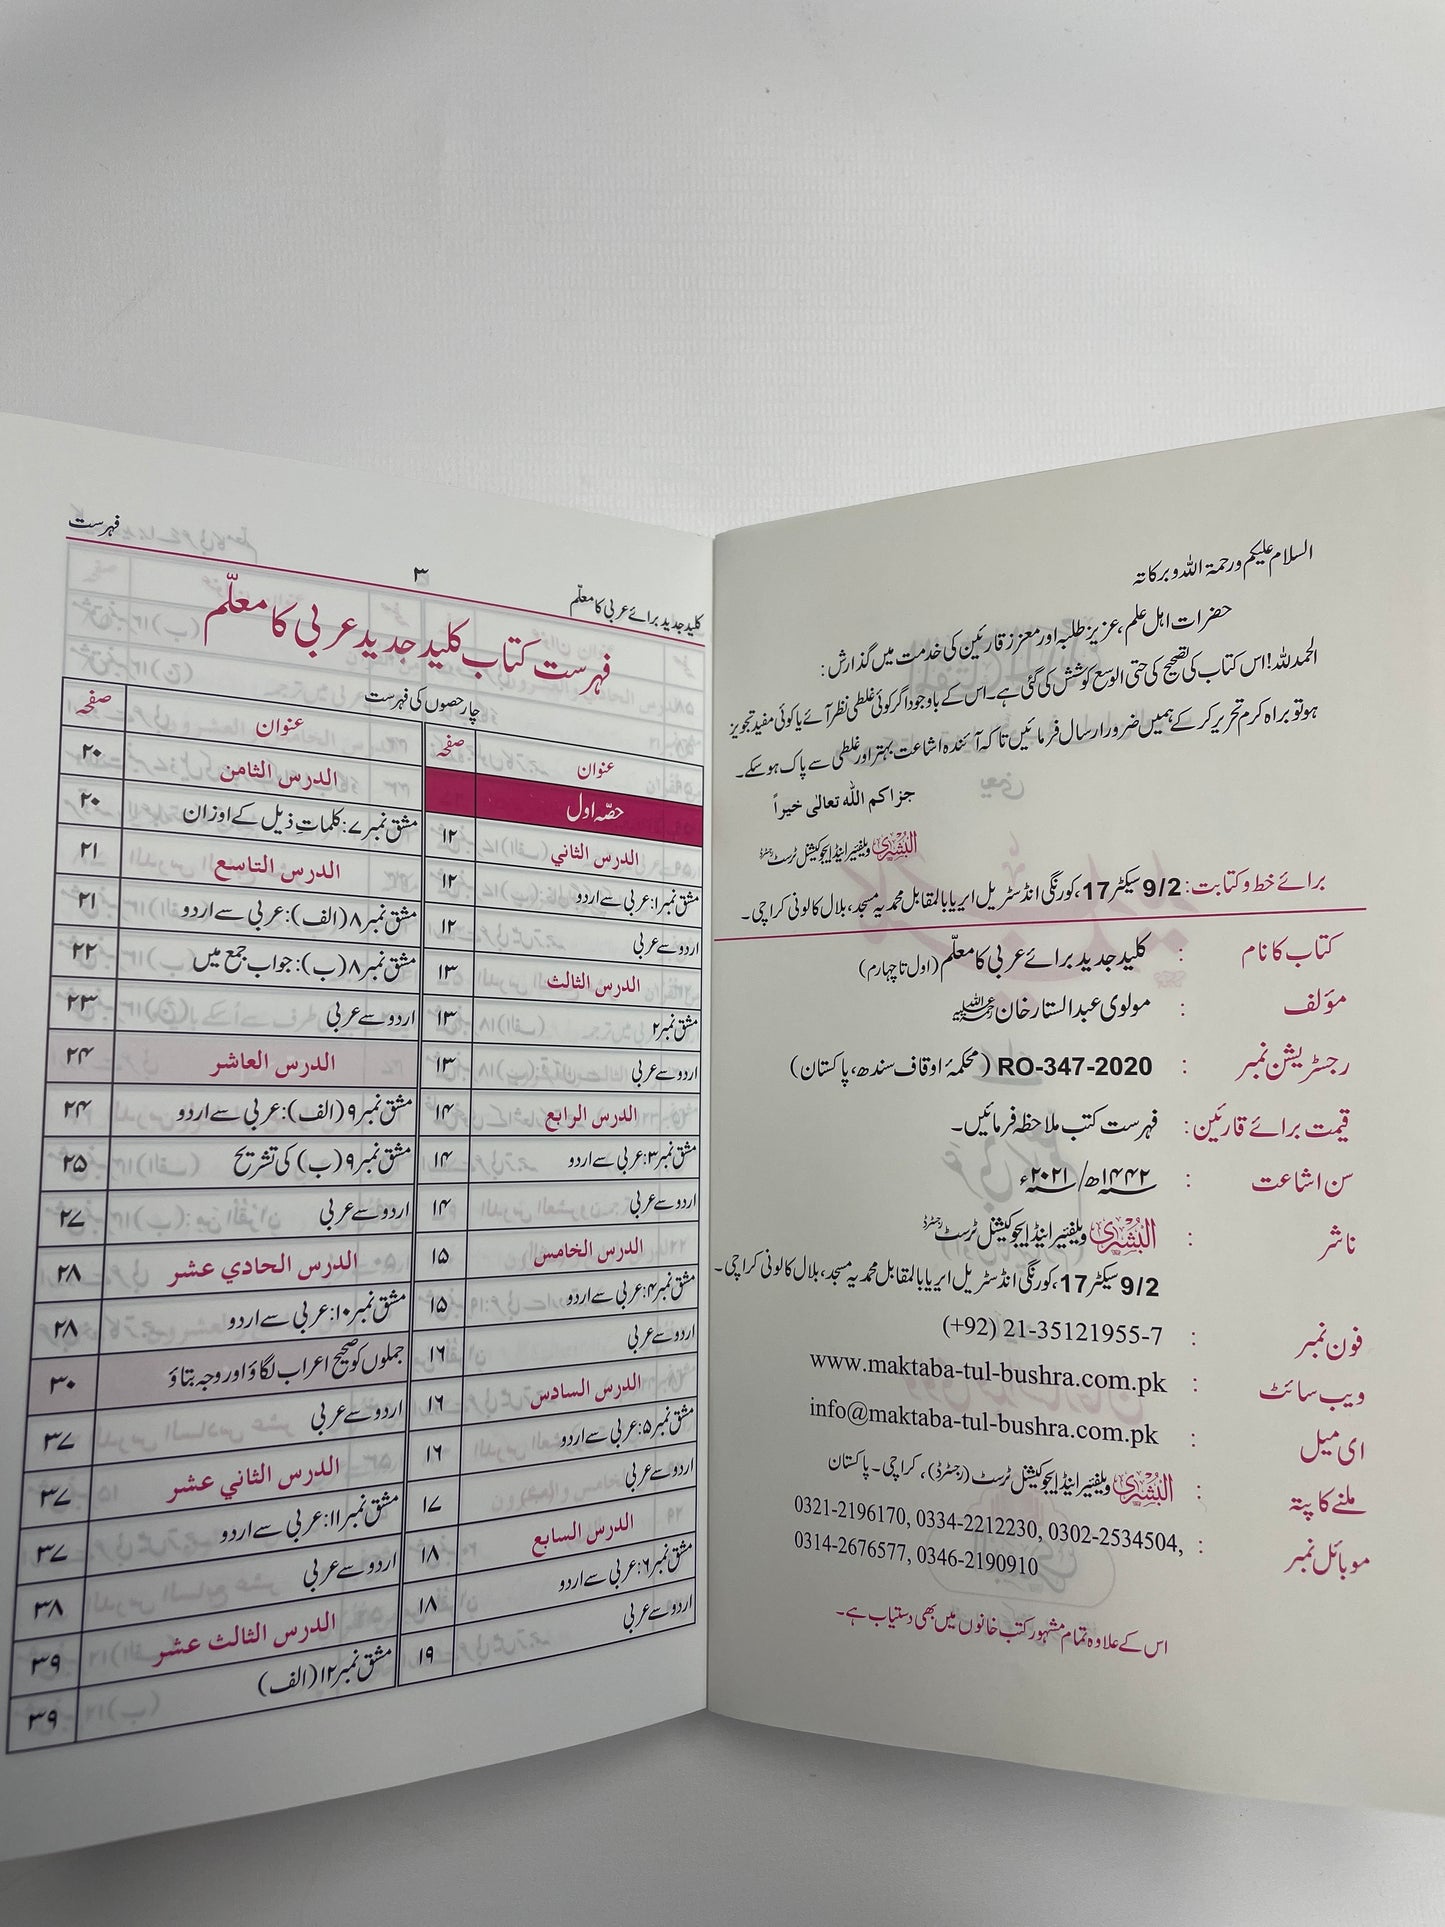 السلام علیکم ورحمۃ اللہ وبرکاتہ
حضرات اہل علم، عزیز طلبہ اور معزز قارئین کی خدمت میں گذارش:
الحمدللہ! اس کتاب کی تصحیح کی حتی الوسع کوشش کی گئی ہے۔ اس کے باوجود اگر کوئی غلطی نظر آئے یا کوئی مفید تجویز
ہو تو براہ کرم تحریر کر کے ہمیں ضرور ارسال فرمائیں تاکہ آئندہ اشاعت بہتر اور غلطی سے پاک ہو سکے۔
جزاکم اللہ تعالٰی خیراً
البُشریٰ ویلفیئر اینڈ ایجوکیشنل ٹرسٹ رجسٹرڈ
برائے خط وکتابت: 9/2 سیکٹر 17، کورنگی انڈسٹریل ایریا بالمقابل محمدیہ مسجد، بلال کالونی کراچی۔
کتاب کا نام : کلید جدید برائے عربی کا معلّم (اول تا چہارم)
مؤلف : مولوی عبد الستار خان رحمۃ اللہ علیہ
رجسٹریشن نمبر : RO-347-2020 (محکمۂ اوقاف سندھ، پاکستان)
قیمت برائے قارئین : فہرست کتب ملاحظہ فرمائیں۔
سن اشاعت : ۱۴۴۲ھ/ ۲۰۲۱ء
ناشر : البُشریٰ ویلفیئر اینڈ ایجوکیشنل ٹرسٹ رجسٹرڈ
9/2 سیکٹر 17، کورنگی انڈسٹریل ایریا بالمقابل محمدیہ مسجد، بلال کالونی کراچی۔
فون نمبر : (+92) 21-35121955-7
ویب سائٹ : www.maktaba-tul-bushra.com.pk
ای میل : info@maktaba-tul-bushra.com.pk
ملنے کا پتہ : البُشریٰ ویلفیئر اینڈ ایجوکیشنل ٹرسٹ (رجسٹرڈ)، کراچی۔ پاکستان
موبائل نمبر : 0321-2196170, 0334-2212230, 0302-2534504,
0314-2676577, 0346-2190910
اس کے علاوہ تمام مشہور کتب خانوں میں بھی دستیاب ہے۔
کلید جدید برائے عربی کا معلّم ۳ فہرست
فہرست کتاب کلید جدید عربی کا معلّم
چار حصوں کی فہرست
عنوان صفحہ
حصّہ اول
الدرس الثاني ۱۲
مشق نمبر۱: عربی سے اردو ۱۲
اردو سے عربی ۱۲
الدرس الثالث ۱۳
مشق نمبر۲ ۱۳
اردو سے عربی ۱۳
الدرس الرابع ۱۴
مشق نمبر۳: عربی سے اردو ۱۴
اردو سے عربی ۱۴
الدرس الخامس ۱۵
مشق نمبر۴: عربی سے اردو ۱۵
اردو سے عربی ۱۶
الدرس السادس ۱۶
مشق نمبر۵: عربی سے اردو ۱۶
اردو سے عربی ۱۷
الدرس السابع ۱۸
مشق نمبر۶: عربی سے اردو ۱۸
اردو سے عربی ۱۹
عنوان صفحہ
الدرس الثامن ۲۰
مشق نمبر ۷: کلماتِ ذیل کے اوزان ۲۰
الدرس التاسع ۲۱
مشق نمبر ۸ (الف): عربی سے اردو ۲۱
مشق نمبر ۸ (ب): جواب جمع میں ۲۲
اردو سے عربی ۲۳
الدرس العاشر ۲۴
مشق نمبر ۹ (الف): عربی سے اردو ۲۴
مشق نمبر ۹ (ب) کی تشریح ۲۵
اردو سے عربی ۲۷
الدرس الحادي عشر ۲۸
مشق نمبر ۱۰: عربی سے اردو ۲۸
جملوں کو صحیح اعراب لگاؤ اور وجہ بتاؤ ۳۰
اردو سے عربی ۳۷
الدرس الثاني عشر ۳۷
مشق نمبر ۱۱: عربی سے اردو ۳۷
اردو سے عربی ۳۸
الدرس الثالث عشر ۳۹
مشق نمبر ۱۲ (الف) ۳۹